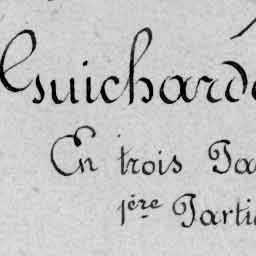 Guichard
En trois Pa
1ère Parti